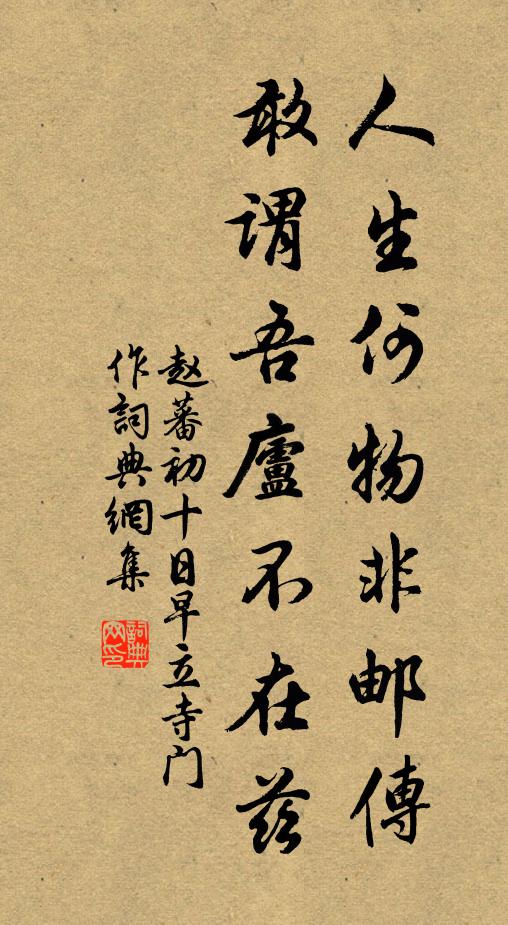 人生何物非邮傳
敢謂吾廬不在茲
赵蕃初十日早立寺门
作詞典網集
詞典
网印